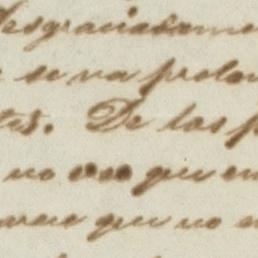 desgraciadame
se va prolon
tes. De las p
no veo que en
que no